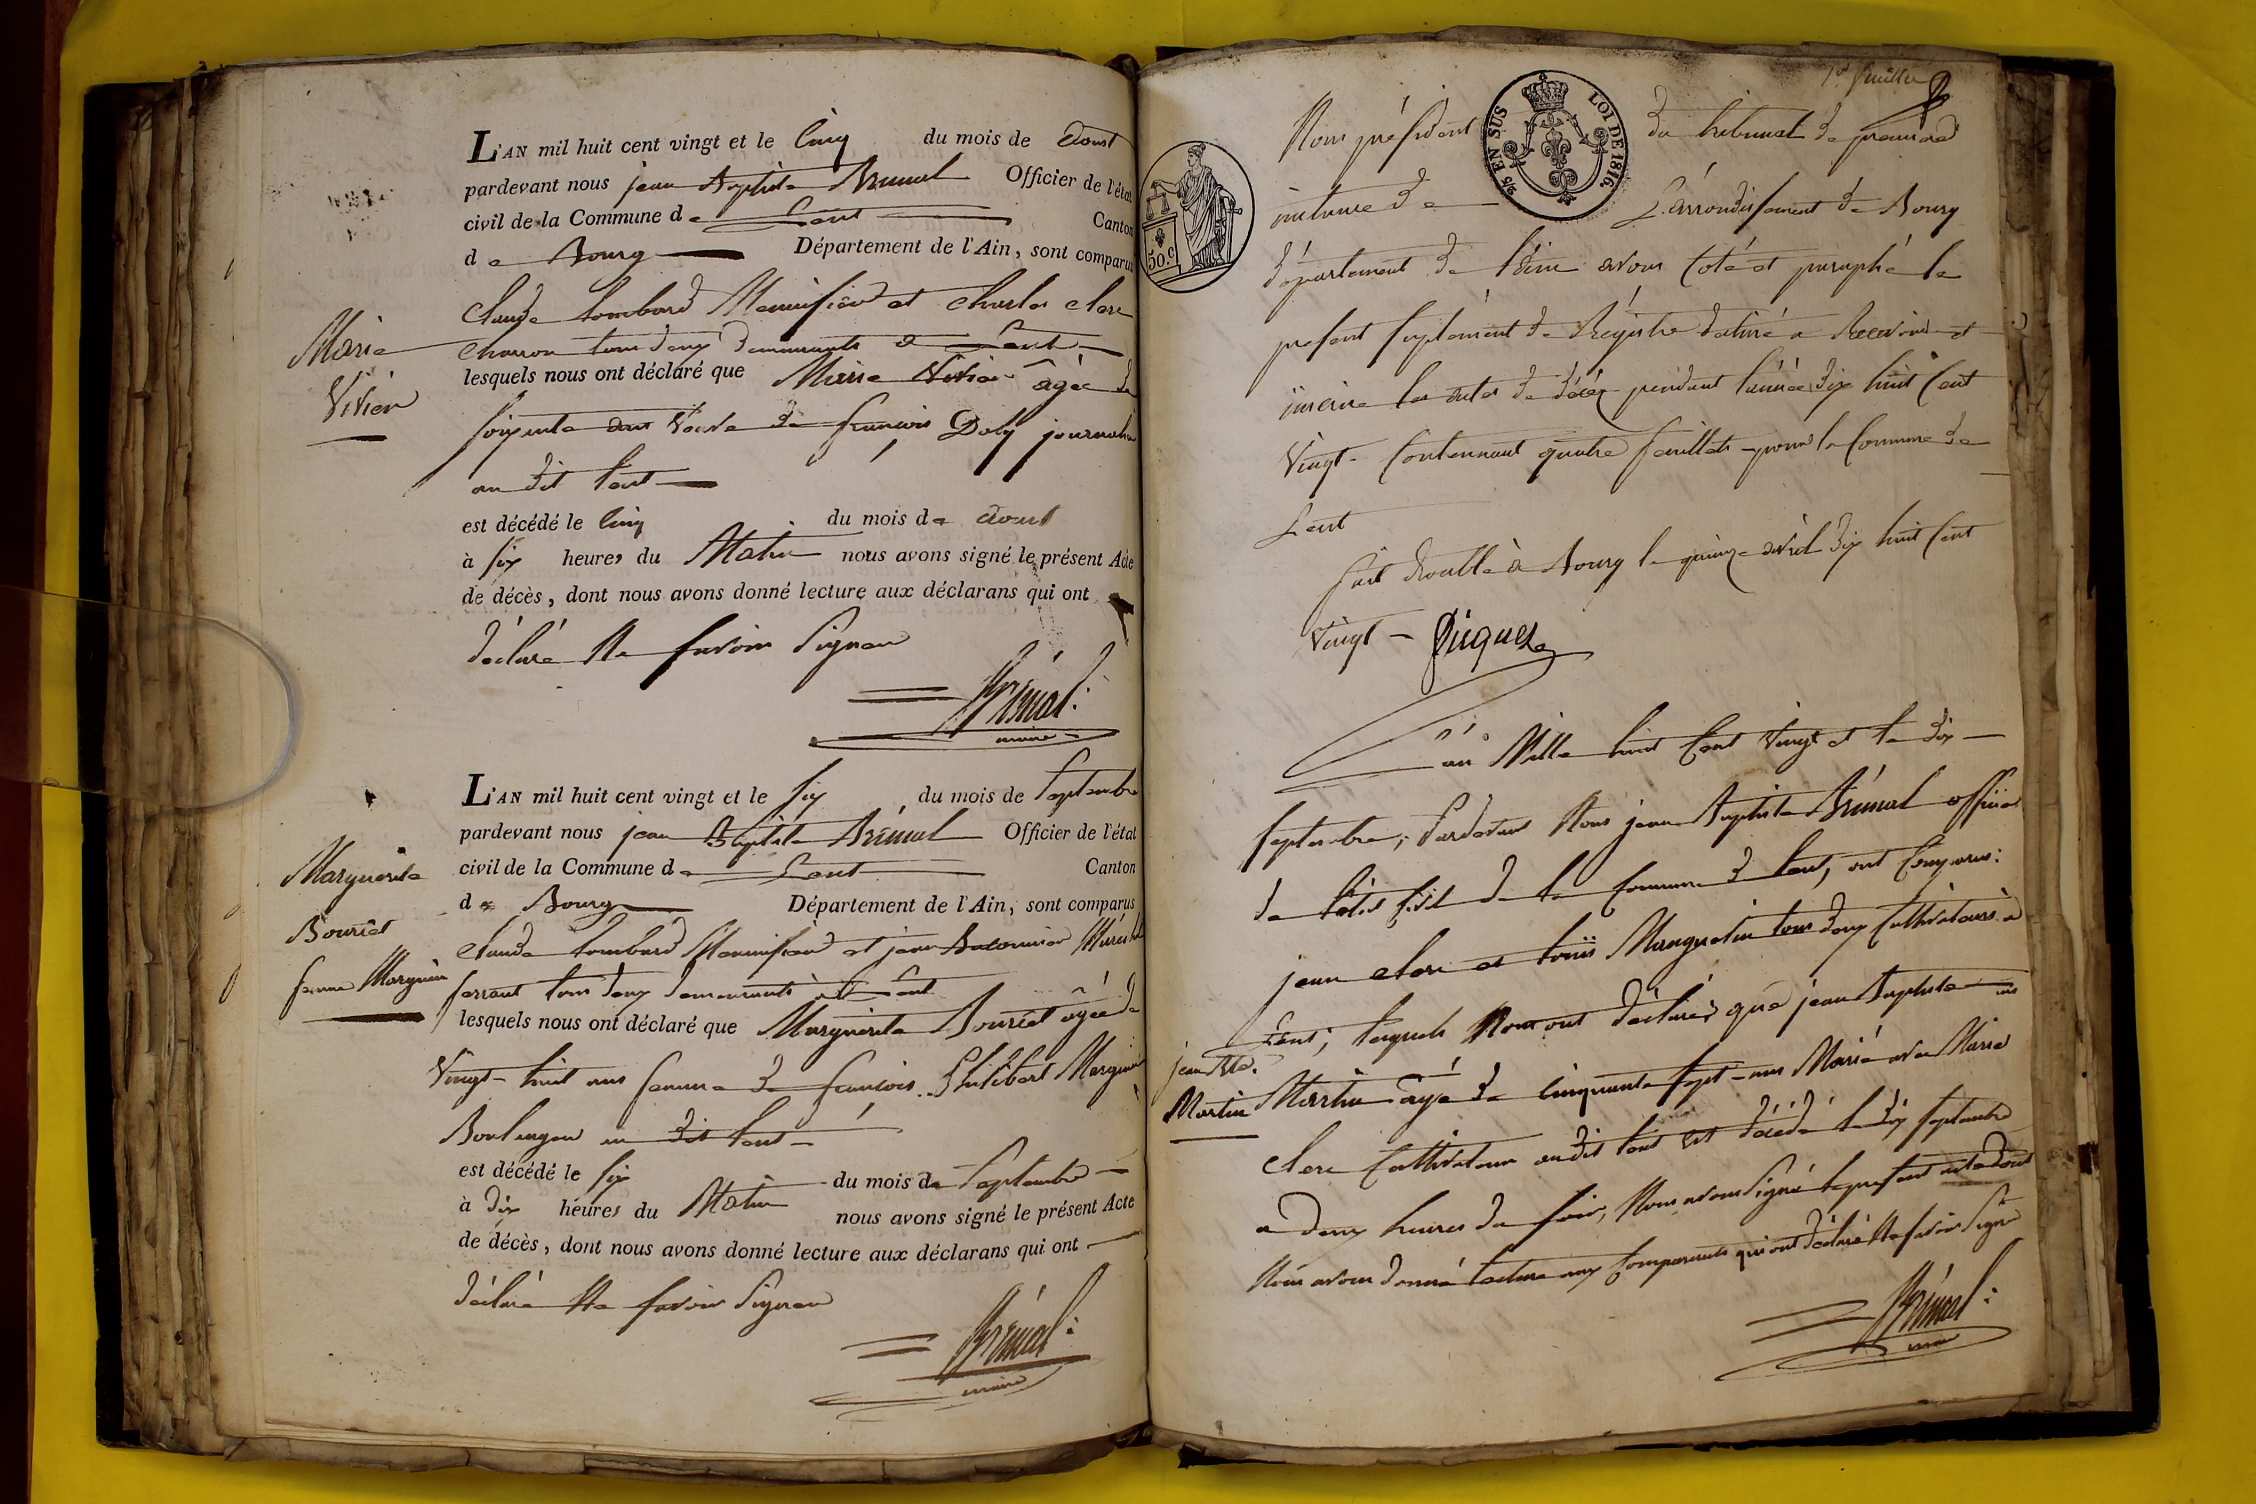 L'AN mil huit cent vingt et le Cinq du mois de Aoust
pardevant nous jean Baptiste Brémal Officier de l'état
civil de la Commune de Lent Canton
de Bourg Département de l'Ain, sont comparus
Claude Lombard Menuisier et Charles Clerc
Charron tous deux demeurants a Lent
Marie
Vivier
lesquels nous ont déclaré que Marie Vivier âgée de
soixante ans Veuve de françois Doly journalier
au dit Lent
est décédé le Cinq du mois de Aoust
à six heures du Matin nous avons signé le présent Acte
de décès, dont nous avons donné lecture aux déclarans qui ont
déclaré Ne savoir Signer
Brémal:
maire
L'AN mil huit cent vingt et le six du mois de Septembre
pardevant nous jean Baptiste Brémal Officier de l'état
civil de la Commune de Lent Canton
de Bourg Département de l'Ain, sont comparus
Marguerite
Bouriet
femme Marguin
Claude Lombard Menuisier et jean Maréchal
ferrant tous deux demeurants à Lent
lesquels nous ont déclaré que Marguerite Bouriet agée de
Vingt-huit ans femme de françois Philibert Marguin
Boulenger au dit Lent
est décédé le six du mois de Septembre
à dix heures du Matin nous avons signé le présent Acte
de décès, dont nous avons donné lecture aux déclarans qui ont
déclaré Ne savoir Signer
Brémal:
maire
1er feuillet
2/5 EN SUS LOI DE 1816.
50.c
Nous président du tribunal de premiere
instance de L'arrondissement de Bourg
département de l'ain avons Coté et paraphé le
présent suplément de Régistre destiné a Recevoir et
inscrire les actes de décès pendant l'année dix huit Cent
Vingt. Contennant quatre feuillets pour la Commune de
Lent
fait double à Bourg le quinze avril dix huit Cent
Vingt - Picquet
L'an Mille huit Cent Vingt et le dix
Septembre, Pardevant Nous jean Baptiste Brémal officier
de l'état Civil de la Commune de Lent, ont Comparus:
jean Clerc et Louis Manguelin tous deux Cultivateurs a
Lent; lesquels Nous ont déclarés que jean Baptiste
jean Bte.
Martin
Martin agé de Cinquante sept ans Marié avec Marie
Clerc Cultivateur audit Lent est décédé le dix septembre
a deux heures du soir, Nous avons Signé le présent acte dont
Nous avons donné lecture aux Comparants qui ont déclaré Ne savoir Signer
Brémal:
maire